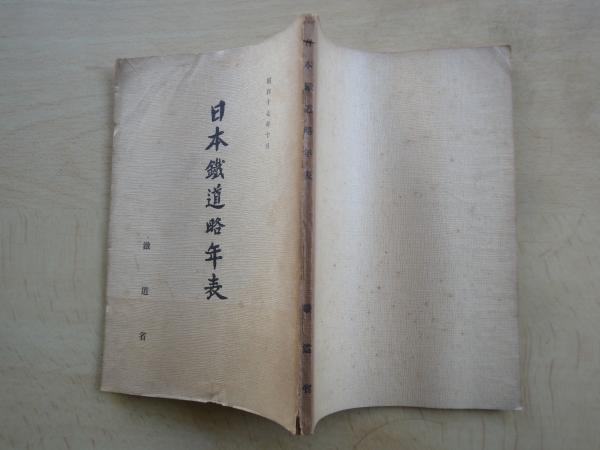 昭和十七年十月
日本鐵道略年表
鐵道省
日本鐵道略年表
鐵道省